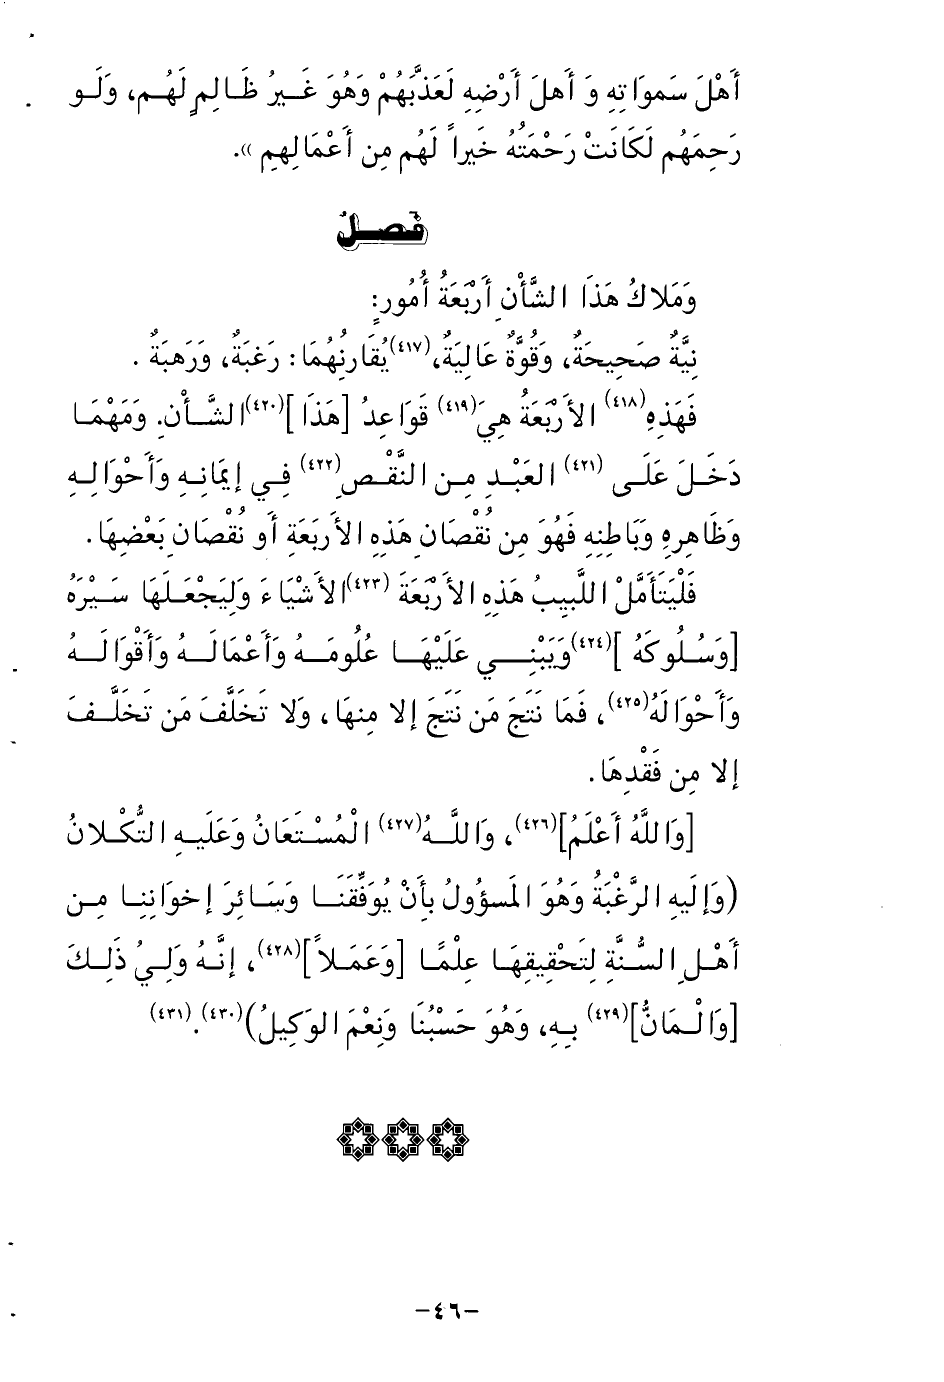 أَهْلَ سَمواتِهِ وَ أَهلَ أَرْضِهِ لَعَذَّبَهُمْ وَهُوَ غَيرُ ظَالِمٍ لَهُم، وَلَو
رَحِمَهُم لَكَانَتْ رَحْمَتُهُ خَيراً لَهُم مِن أَعْمَالِهِم ».
فَصلٌ
وَمَلاكُ هَذَا الشَّأْنِ أَرْبَعَةُ أُمُورٍ:
نِيَّةٌ صَحِيحَةٌ، وَقُوَّةٌ عَالِيَةٌ،(٤١٧) يُقَارِنُهُمَا: رَغبَةٌ، وَرَهبَةٌ .
فَهَذِهِ(٤١٨) الأَرْبَعَةُ هِيَ(٤١٩) قَوَاعِدُ [هَذَا ](٤٢٠) الشَّأن. وَمَهْمَا
دَخَلَ عَلَى (٤٢١) العَبْدِ مِن النَّقْصِ(٤٢٢) فِي إيمَانِهِ وَأَحْوَالِهِ
وَظَاهِرِهِ وَبَاطِنِهِ فَهُوَ مِن نُقْصَانِ هَذِهِ الأَربَعَةِ أَو نُقْصَانِ بَعْضِهَا.
فَلْيَتَأمَّلْ اللَّبِيبُ هَذِهِ الأَرْبَعَةَ (٤٢٣) الأَشْيَاءَ وَلِيَجْعَلَهَا سَيْرَهُ
[وَسُلُوكَهُ ](٤٢٤) وَيَبْنِي عَلَيْهَا عُلُومَهُ وَأَعْمَالَهُ وَأَقْوَالَهُ
وَأَحْوَالَهُ(٤٢٥)، فَمَا نَتَجَ مَن نَتَجَ إلا مِنهَا، وَلا تَخَلَّفَ مَن تَخَلَّفَ
إلا مِن فَقْدِهَا.
[وَاللَّهُ أَعْلَمُ](٤٢٦)، وَاللَّهُ(٤٢٧) الْمُسْتَعَانُ وَعَلَيهِ التُّكْلانُ
(وَإلَيهِ الرَّغْبَةُ وَهُوَ المَسؤُولُ بِأَنْ يُوَفِّقَنَا وَسَائِرَ إخوَانِنِا مِن
أَهْلِ السُّنَّةِ لِتَحْقِيقِهَا عِلْمًا [وَعَمَلاً](٤٢٨)، إنَّهُ وَلِيُ ذَلِكَ
[وَالْمَانُّ](٤٢٩) بِهِ، وَهُوَ حَسْبُنَا وَنِعْمَ الوَكِيلُ)(٤٣٠).(٤٣١)
-٤٦-